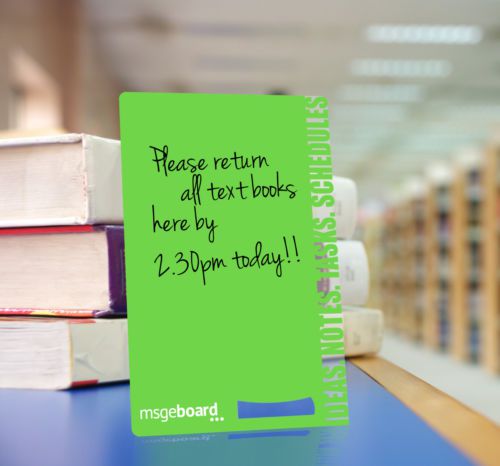 Please return
all text books
here by
2.30pm today!!
IDEAS. NOTES. TASKS. SCHEDULES
msgeboard